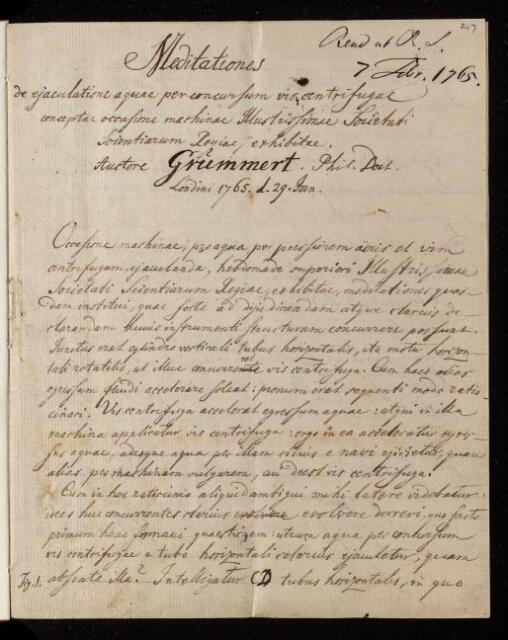 207
Read at R. S.
7 Febr. 1765.
Meditationes
de ejaculatione aquae per concursum vis centrifugae
conceptae occasione machinae Illustrissimae Societati
Scientiarum Regiae, exhibitae.
Auctore Grummert. Phil. Doct.
Londini 1765. d. 29. Jan.
Occasione machinae, pro aqua per pressionem aeris et vim
centrifugam, ejaculanda, hebdomade superiori Illustrissimae
Societati Scientiarum Regiae, exhibitae, meditationes quas-
dam institui, quae forte ad dijudicandam atque clarius de-
clarandam hujus instrumenti structuram concurrere possunt.
Junctus erat cylindro verticali tubus horizontalis, ita motu horizon-
tali rotatilis, ut illuc concurreret vis centrifuga. Cum haec alias
egressum fluidi accelerare soleat: pronum erat sequenti modo ratio-
cinari. Vis centrifuga accelerat egressum aquae: atqui in illa
machina applicatur vis centrifuga: ergo in ea acceleratur egres-
sus aquae, adeoque aqua per illam citius e navi ejicietur, quam
alias per machinam vulgarem, cui deest vis centrifuga.
Cum in hoc ratiocinio aliquid ambigui mihi latere videbatur:
vires huc concurrentes clarius evolvere decrevi, quo facto
primum hanc formavi quaestionem: utrum aqua per concursum
vis centrifugae e tubo horizontali celerius ejaculetur, quam
absente illa? Intelligatur CD tubus horizontalis, in quo
Fig. 1.